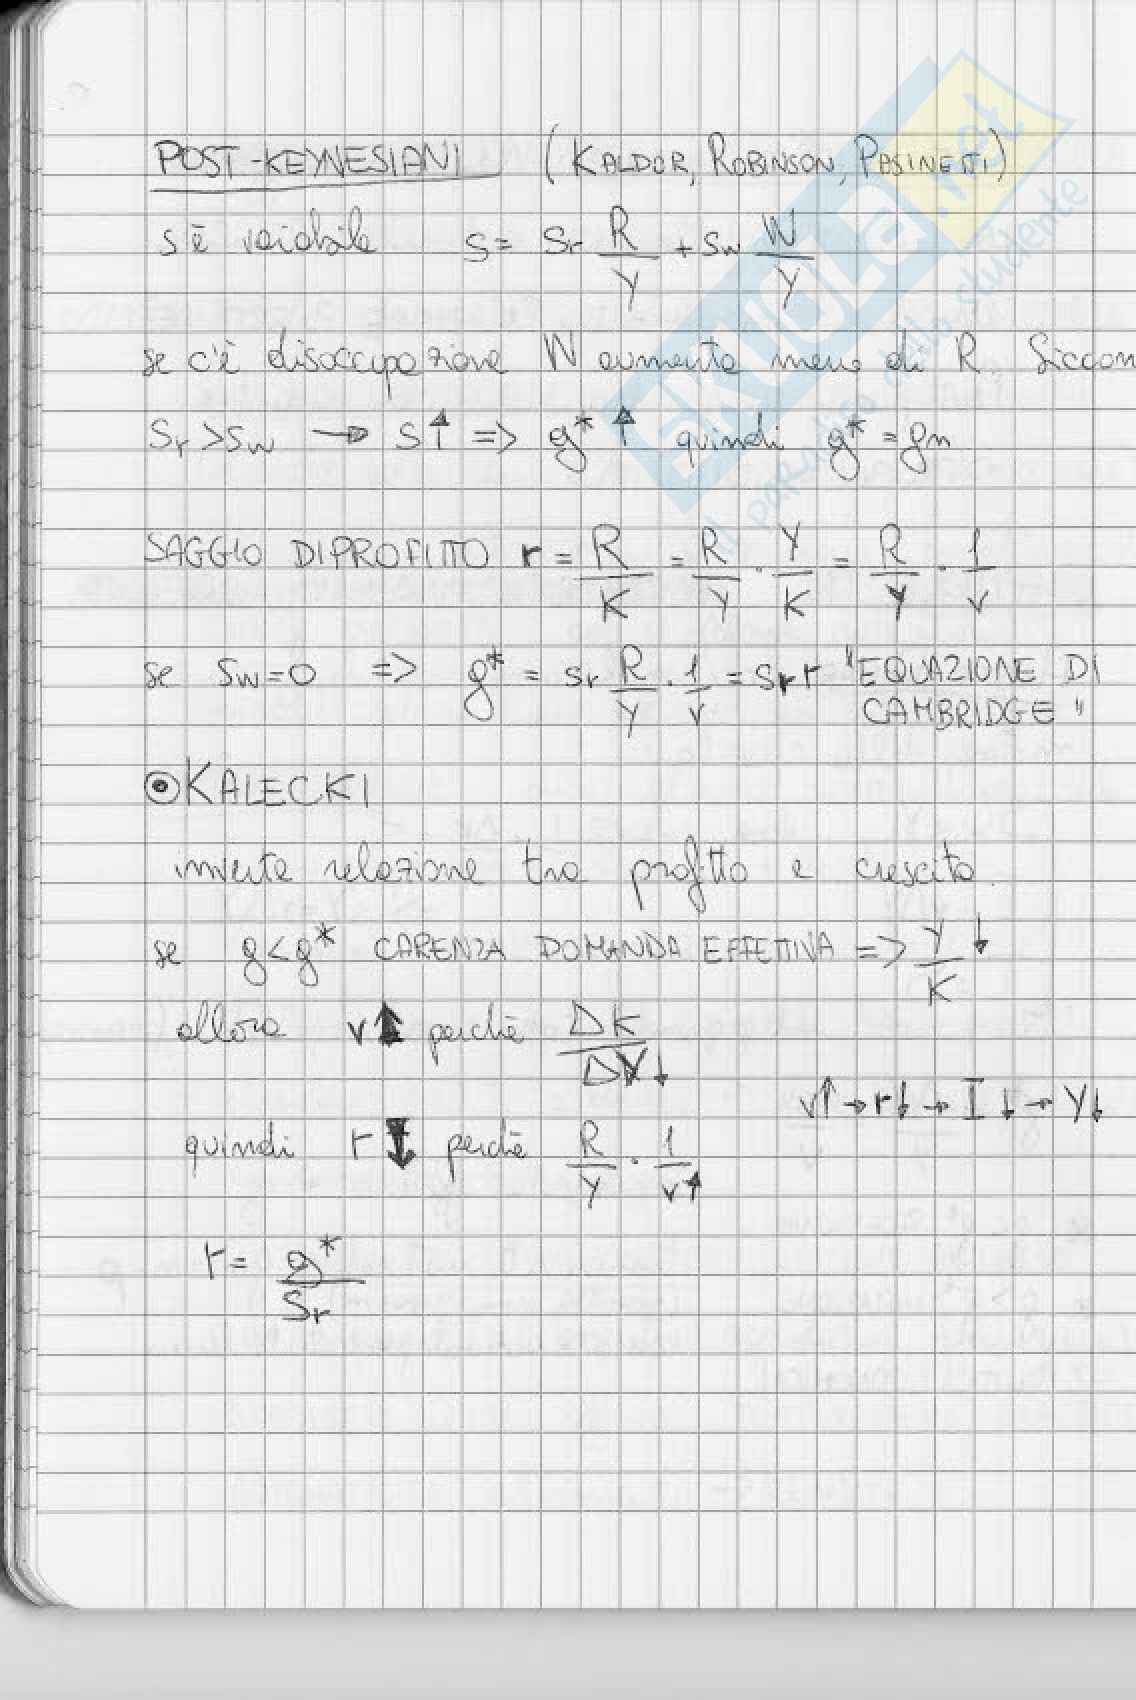 POST-KEYNESIANI (KALDOR, ROBINSON, PASINETTI)
s è variabile s = sr R/Y + sw W/Y
se c'è disoccupazione W aumenta meno di R. Siccom
sr > sw → s↑ => g* ↑ quindi g* = gn
SAGGIO DI PROFITTO r = R/K = R/Y · Y/K = R/Y · 1/v
se sw = 0 => g* = sr R/Y · 1/v = sr r "EQUAZIONE DI
CAMBRIDGE"
⊙ KALECKI
inverte relazione tra profitto e crescita.
se g < g* CARENZA DOMANDA EFFETTIVA => Y/K ↓
allora v↑ perchè ΔK/ΔY↓
v↑ → r↓ → I↓ → Y↓
quindi r↓ perchè R/Y · 1/v↑
r = g*/sr
SKUOLA.net
il paradiso dello studente